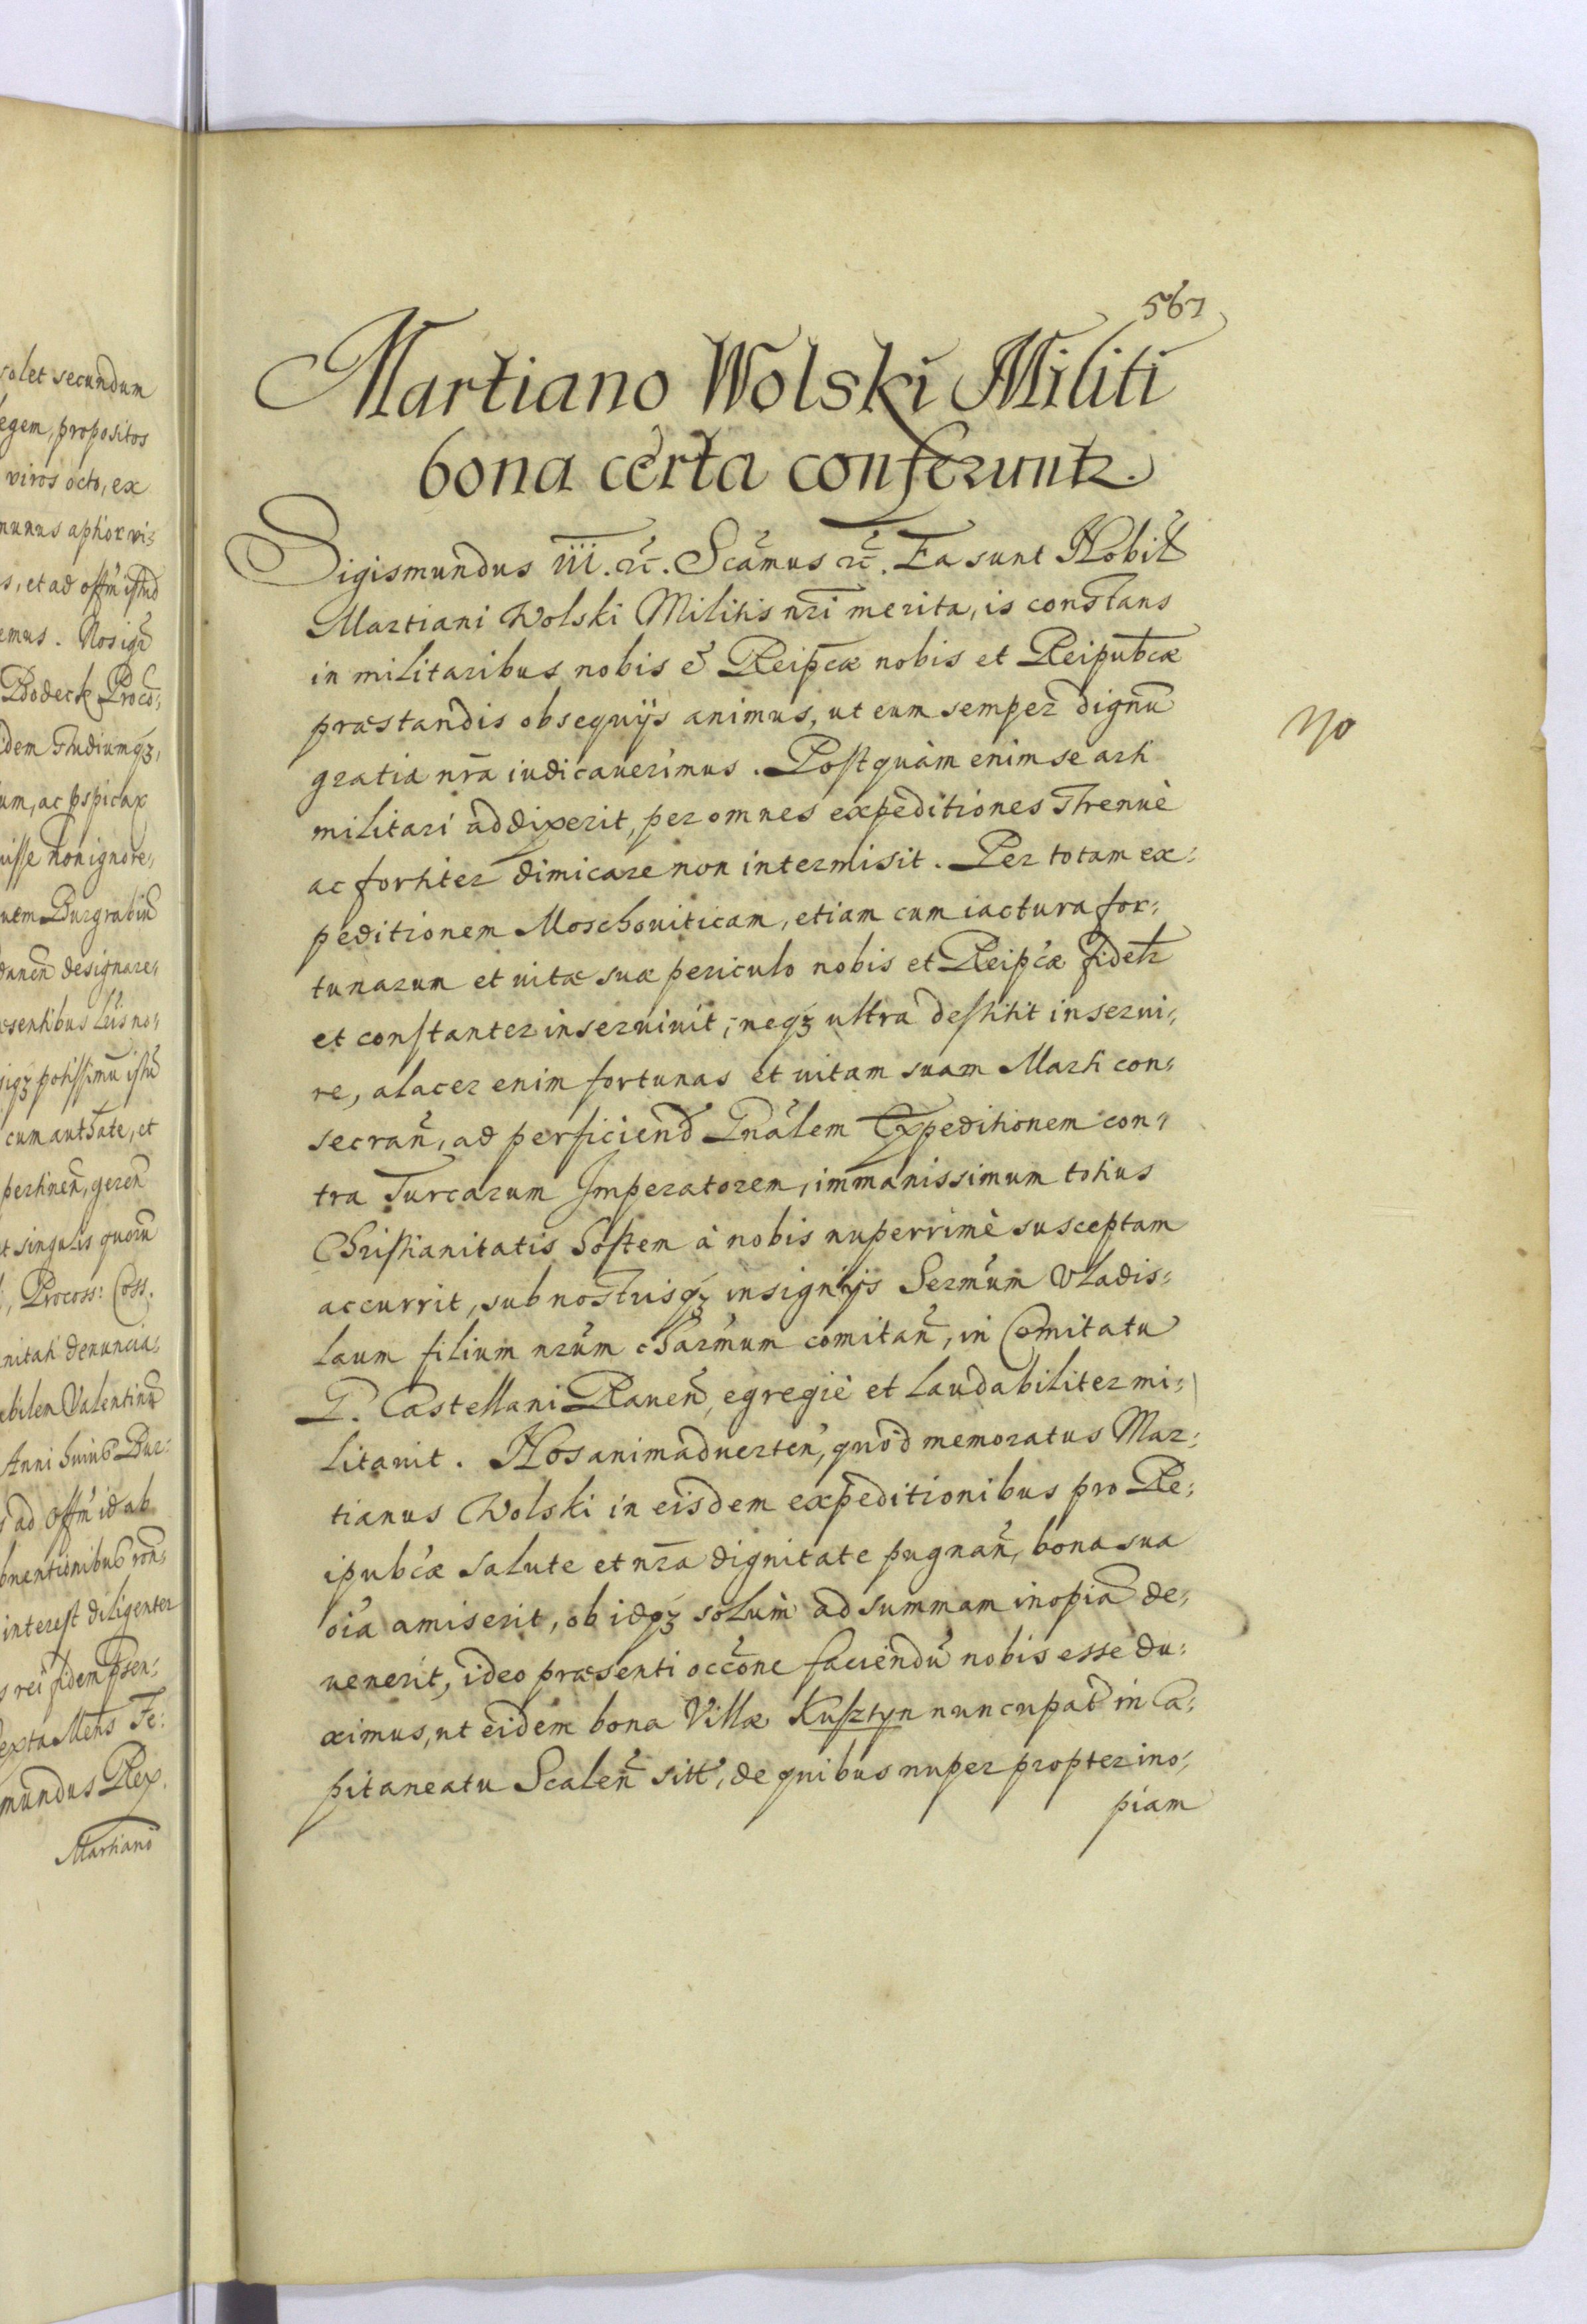 solet secundum
egem, propositos
viros octo, ex
munus aphor vi:
s, et ad offm istud
emus. Nos igr
Proco:
idem studiumq3,
um, ac pspicax
uisse non ignore,
utem Burgrabiu
danen designare,
sentibus lris no,
siq3 potissimu istu
cum autthate, et
pertinen, geren
t singulis quoru
, Procoss: Coss.
nitati denuncia:
bilem Valentinu
Anni huius Bur:
s ad offm id ab
interest diligenter
s rei fidem psen:
exta Mens Fe:
mundus Rex.
Martiano
567
Martiano Wolski Militi
bona certa conferuntr.
Sigismundus III. rc. Scamus rc. Ea sunt Nobil
Martiani Wolski Militis nri merita, is constans
in militaribus nobis & Reipcæ nobis et Reipubcæ
præstandis obsequijs animus, ut eum semper dignu
gratia nra iudicauerimus. Postquàm enim se arti
militari addixerit, per omnes expeditiones strenuè
ac fortiter dimicare non intermisit. Per totam ex:
peditionem Moschouiticam, etiam cum iactura for:
tunarum et uitæ suæ periculo nobis et Reipcæ fidelr
et constanter inseruiuit; neq3 ultra destitit inserui:
re, alacer enim fortunas et uitam suam Marti con:
secran, ad perficiend Gnalem Expeditionem con:
tra Turcarum Imperatorem, immanissimum totius
Christianitatis hostem à nobis nuperrimè susceptam
accurrit, sub nostrisq3 insignijs Sermum Vladis:
laum filium nrum charmum comitan, in Comitatu
G. Castellani Rauen, egregiè et laudabiliter mi:
litauit. Nos animaduerten, quòd memoratus Mar:
tianus Wolski in eisdem expeditionibus pro Re:
ipubcæ salute et nra dignitate pugnan, bona sua
oia amiserit, ob idq3 solum ad summam inopia de:
uenerit, ideo præsenti occone faciendu nobis esse du:
ximus, ut eidem bona Villæ Kusztyn nuncupat in Ca:
pitaneatu Scalen sitt, de quibus nuper propter ino:
piam
No